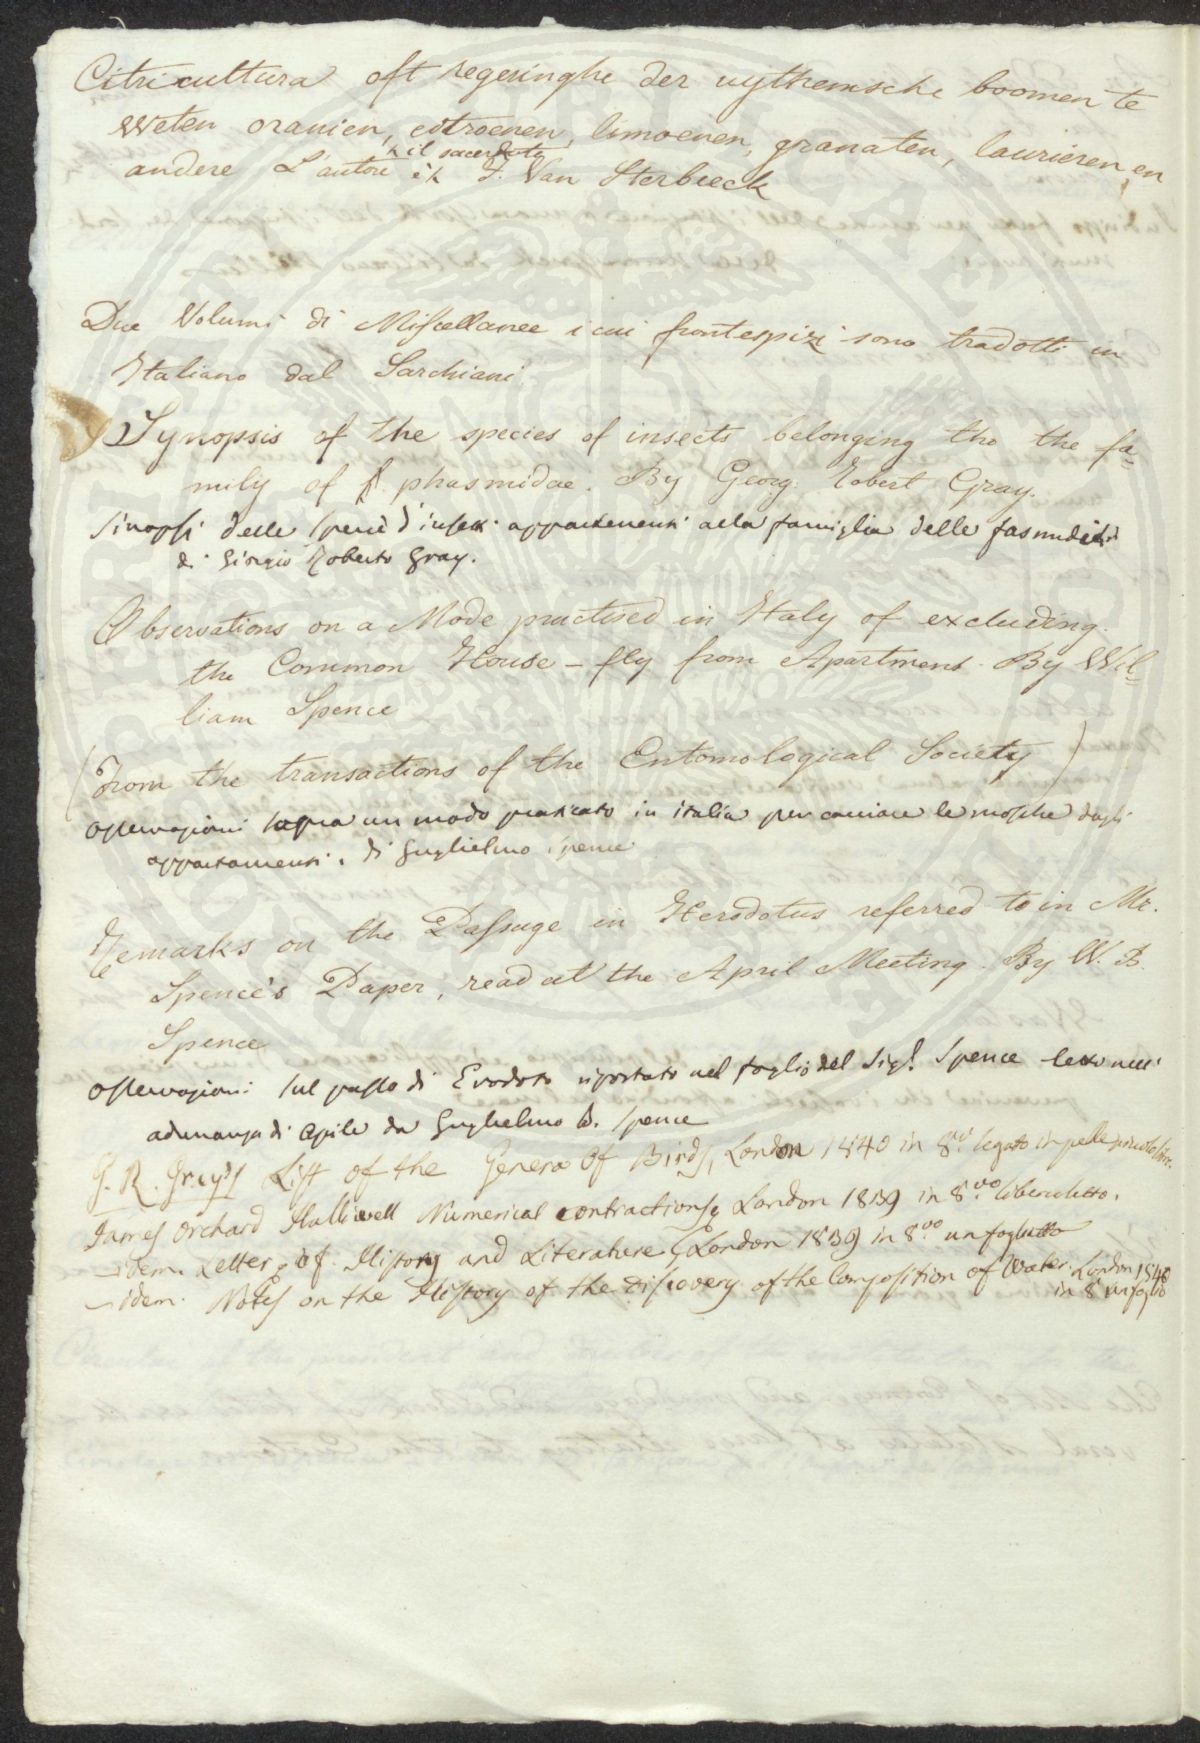 Citricultura oft regeringhe der uythemsche boomen te
Weten oranien, citroenen, limoenen, granaten, laurieren en
andere L'autore è il sacerdote F. Van Sterbeeck
Due Volumi di Miscellanee i cui frontespizi sono tradotti in
Italiano dal Sarchiani
Synopsis of the species of insects belonging tho the fa=
mily of phasmidae. By Georg. Robert Gray.
Sinopsi delle specie d'insetti appartenenti alla famiglia delle fasmididi
di Giorgio Roberto Gray.
Observations on a Mode practised in Italy of excluding
the Common House-fly from Apartment. By Wil=
liam Spence
(From the transactions of the Entomological Society)
Osservazioni sopra un modo praticato in italia per cacciare le mosche dagli
appartamenti. di Guglielmo Spence
Remarks on the Passage in Herodotus referred to in Mr.
Spence's Paper, read at the April Meeting. By W. B.
Spence
Osservazioni sul passo di Erodoto riportato nel foglio del Sigr. Spence letto nell'
adunanza di Aprile da Guglielmo B. Spence
G. R. Gray's List of the Genera Of Birds, London 1840 in 8vo. legato in pelle
James Orchard Halliwell Numerical contractions, London 1839 in 8vo libercoletto.
— idem. Letter of History and Literature, London 1839 in 8vo un foglietto
— idem. Notes on the History of the Discovery of the Composition of Water. London 1840
in 8o un foglio